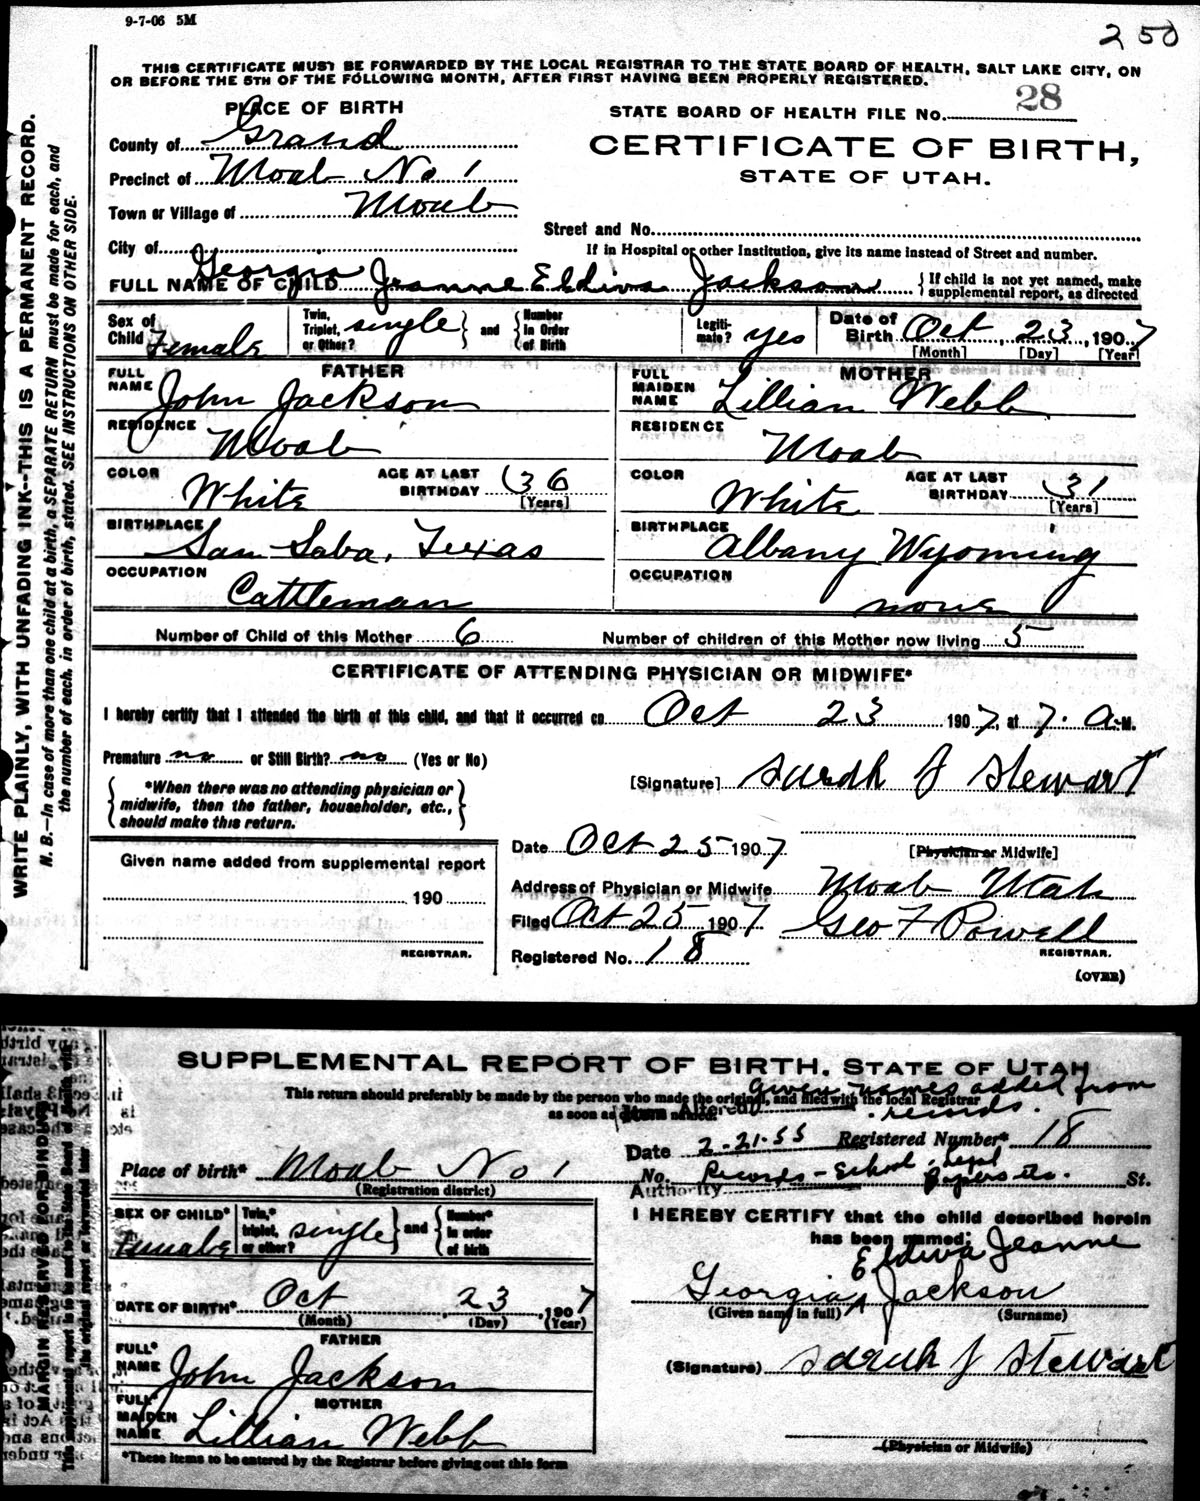 9-7-06 5M
250
THIS CERTIFICATE MUST BE FORWARDED BY THE LOCAL REGISTRAR TO THE STATE BOARD OF HEALTH, SALT LAKE CITY, ON
OR BEFORE THE 5TH OF THE FOLLOWING MONTH, AFTER FIRST HAVING BEEN PROPERLY REGISTERED.
WRITE PLAINLY, WITH UNFADING INK--THIS IS A PERMANENT RECORD.
N. B.—In case of more than one child at a birth, a SEPARATE RETURN must be made for each, and
the number of each, in order of birth, stated. SEE INSTRUCTIONS ON OTHER SIDE.
PLACE OF BIRTH
STATE BOARD OF HEALTH FILE No. 28
County of Grand
CERTIFICATE OF BIRTH,
STATE OF UTAH.
Precinct of Moab No 1
Town or Village of Moab
Street and No.
City of
If in Hospital or other Institution, give its name instead of Street and number.
FULL NAME OF CHILD Georgia Jeanne Eldiva Jackson { If child is not yet named, make
supplemental report, as directed
Sex of Child Female
Twin, Triplet, or Other? single } and { Number In Order of Birth
Legitimate? yes
Date of Birth Oct 23, 1907
[Month] [Day] [Year]
FATHER
FULL NAME John Jackson
MOTHER
FULL MAIDEN NAME Lillian Webb
RESIDENCE Moab
RESIDENCE Moab
COLOR White AGE AT LAST BIRTHDAY 36 [Years]
COLOR White AGE AT LAST BIRTHDAY 31 [Years]
BIRTHPLACE San Saba, Texas
BIRTHPLACE Albany Wyoming
OCCUPATION Cattleman
OCCUPATION none
Number of Child of this Mother 6 Number of children of this Mother now living 5
CERTIFICATE OF ATTENDING PHYSICIAN OR MIDWIFE*
I hereby certify that I attended the birth of this child, and that it occurred on Oct 23 1907, at 7. A.M.
Premature no or Still Birth? no (Yes or No)
[Signature] Sarah J Stewart
{ *When there was no attending physician or
midwife, then the father, householder, etc.,
should make this return. }
Date Oct 25 1907 [Physician or Midwife]
Given name added from supplemental report
190
REGISTRAR.
Address of Physician or Midwife Moab Utah
Filed Oct 25 1907 Geo F Powell
Registered No. 18 REGISTRAR.
(OVER)
SUPPLEMENTAL REPORT OF BIRTH. STATE OF UTAH
given names added from
This return should preferably be made by the person who made the original, and filed with the local Registrar
records.
as soon as
Altered
Date 2-21-55 Registered Number* 18
Place of birth* Moab No 1
(Registration district)
No. Records - School, Legal Papers etc. St.
Authority
SEX OF CHILD* Female
Twin,* triplet, or other? single } and { Number* in order of birth
I HEREBY CERTIFY that the child described herein
has been named:
Eldiva Jeanne
Georgia ^ Jackson
(Given name in full) (Surname)
DATE OF BIRTH* Oct 23, 1907
(Month) (Day) (Year)
FATHER
FULL* NAME John Jackson
(Signature) Sarah J Stewart
MOTHER
FULL MAIDEN NAME Lillian Webb
(Physician or Midwife)
*These items to be entered by the Registrar before giving out this form
MARGIN RESERVED FOR BINDING